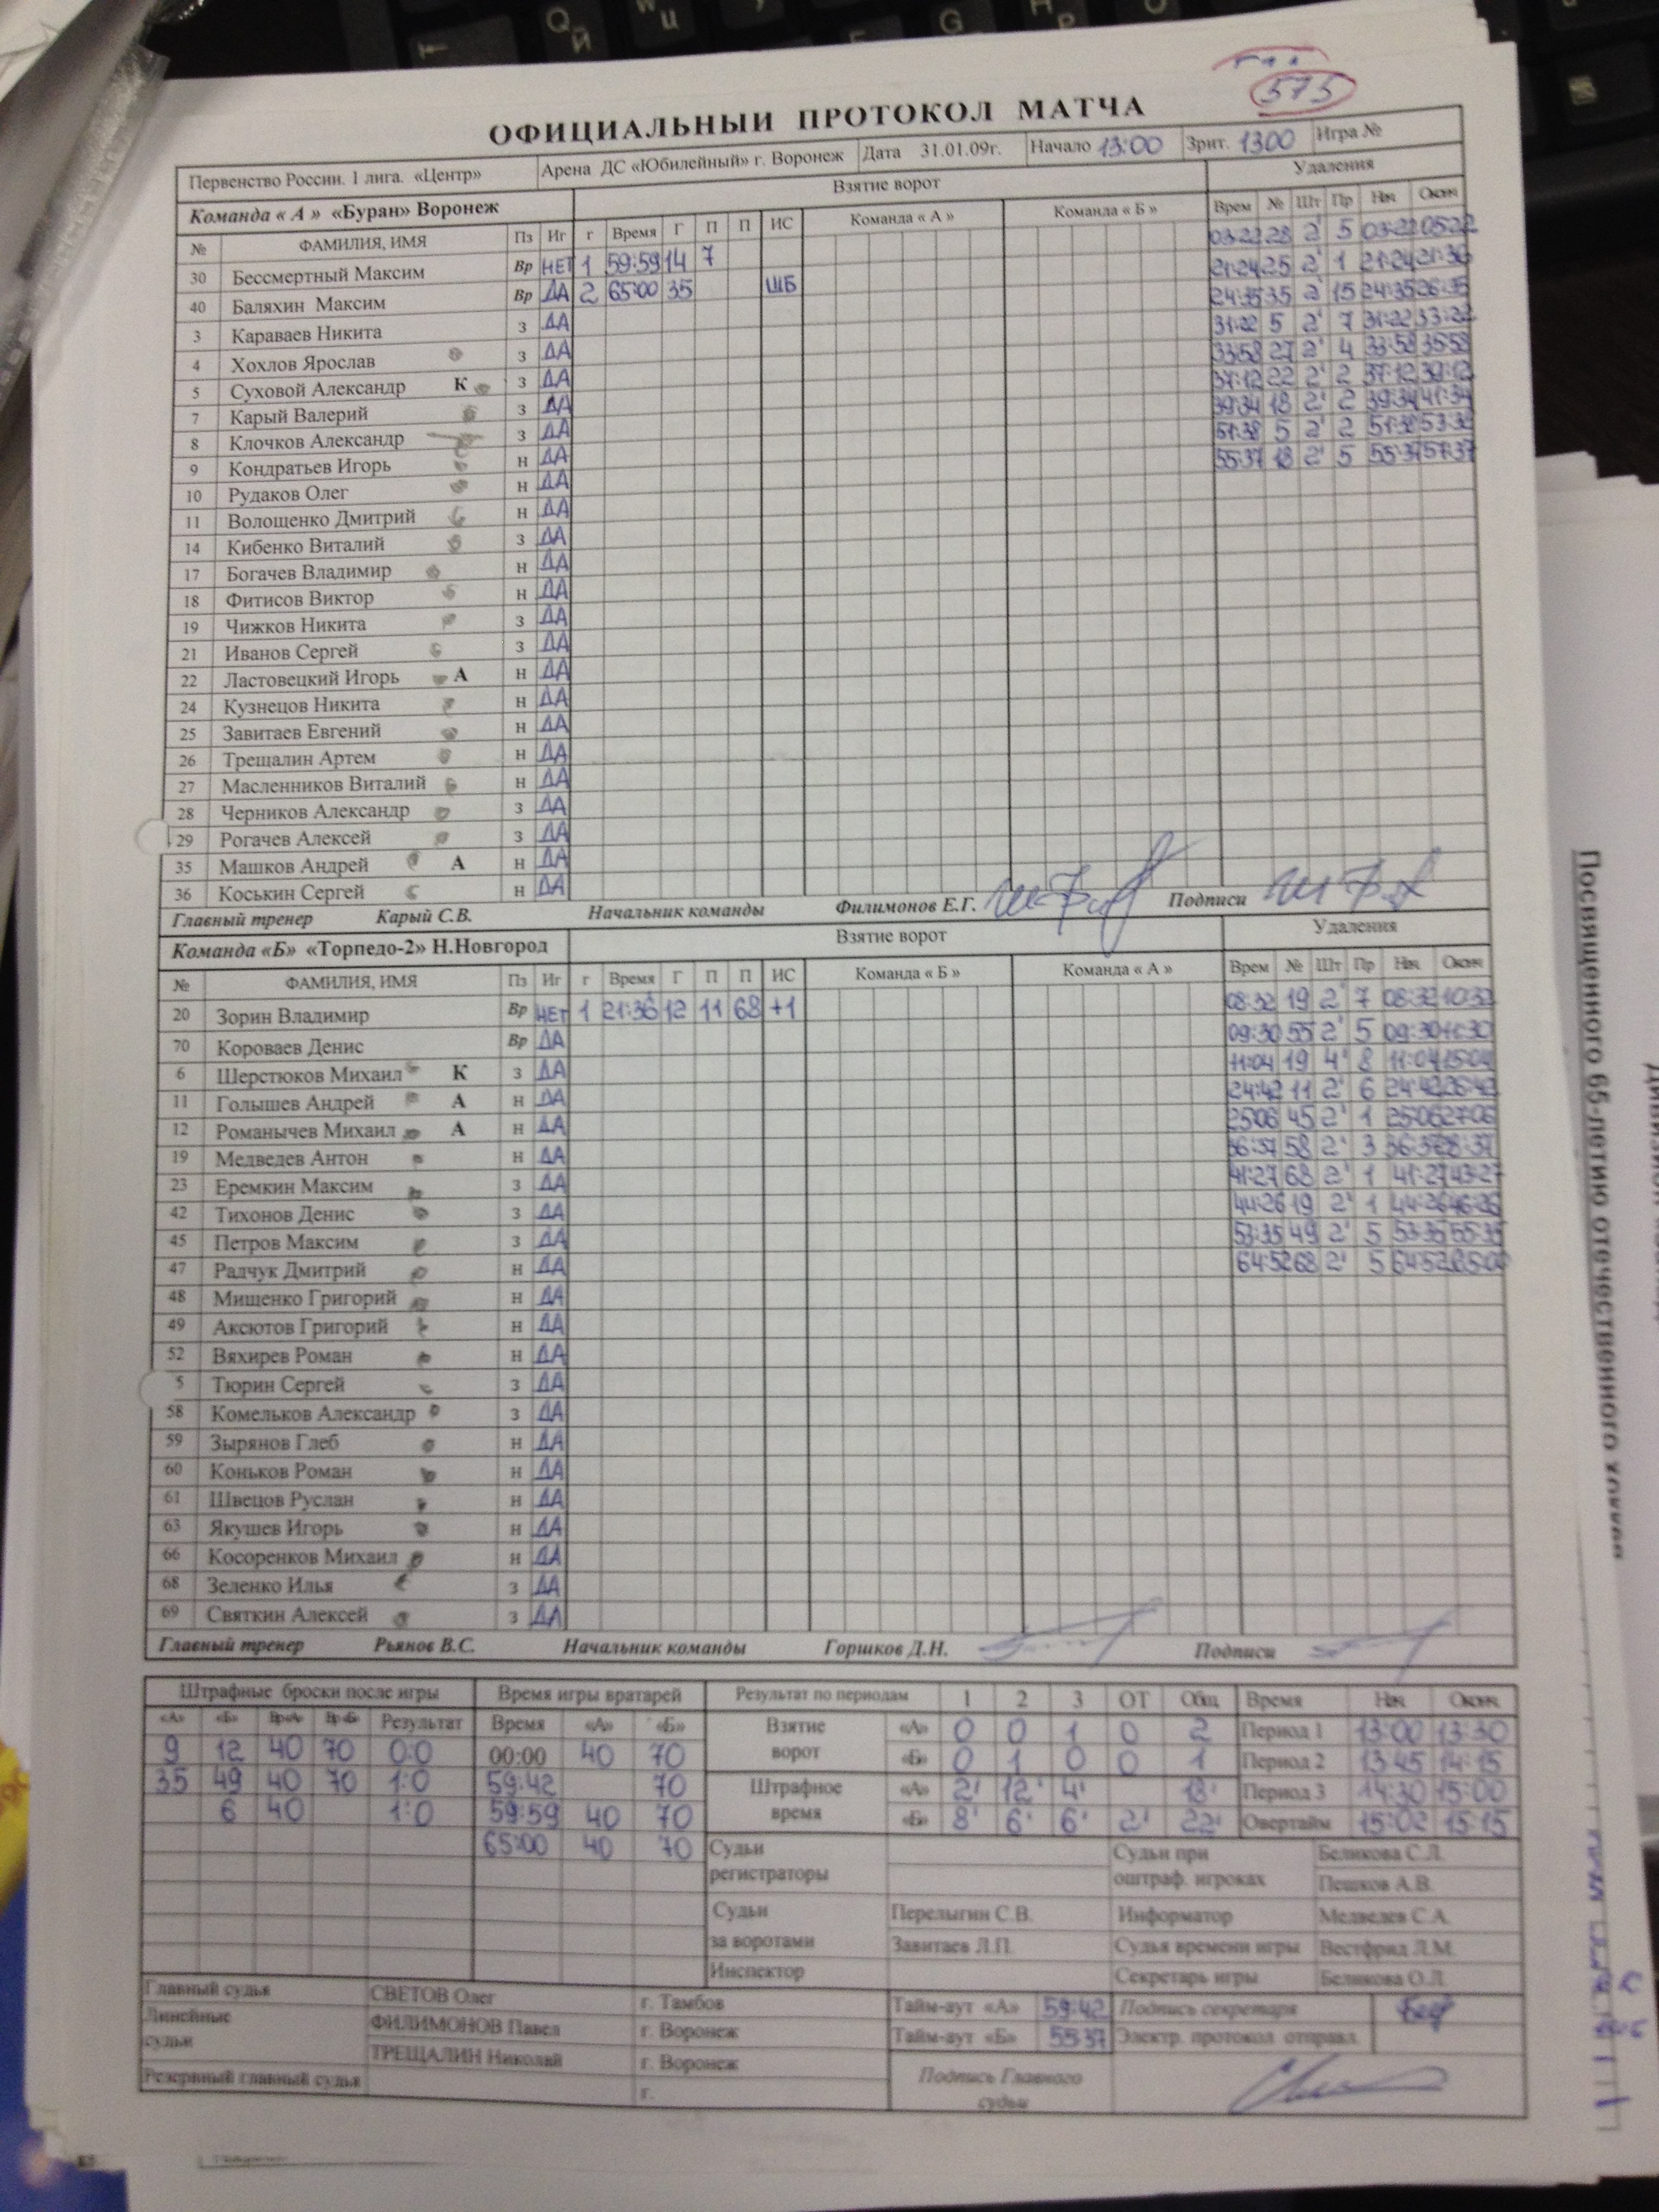 575
ОФИЦИАЛЬНЫЙ ПРОТОКОЛ МАТЧА
Первенство России. 1 лига. «Центр» Арена ДС «Юбилейный» г. Воронеж Дата 31.01.09г. Начало 13:00 Зрит. 1300 Игра №
Команда « А » «Буран» Воронеж Взятие ворот Удаления
№ ФАМИЛИЯ, ИМЯ Пз Иг г Время Г П П ИС Команда « А » Команда « Б » Врем № Шт Пр Нач Оконч
30 Бессмертный Максим Вр НЕТ 1 59:59 14 7 03:22 28 2' 5 03:22 05:22
40 Баляхин Максим Вр ДА 2 65:00 35 ШБ 21:24 25 2' 1 21:24 21:36
3 Караваев Никита з ДА 24:35 35 2' 15 24:35 26:35
4 Хохлов Ярослав з ДА 31:22 5 2' 7 31:22 33:22
5 Суховой Александр К з ДА 33:58 27 2' 4 33:58 35:58
7 Карый Валерий з ДА 37:12 22 2' 2 37:12 39:12
8 Клочков Александр з ДА 39:34 18 2' 2 39:34 41:34
9 Кондратьев Игорь н ДА 51:38 5 2' 2 51:38 53:38
10 Рудаков Олег н ДА 55:37 18 2' 5 55:37 57:37
11 Волощенко Дмитрий н ДА
14 Кибенко Виталий з ДА
17 Богачев Владимир н ДА
18 Фитисов Виктор н ДА
19 Чижков Никита з ДА
21 Иванов Сергей з ДА
22 Ластовецкий Игорь А н ДА
24 Кузнецов Никита н ДА
25 Завитаев Евгений н ДА
26 Трещалин Артем н ДА
27 Масленников Виталий н ДА
28 Черников Александр з ДА
29 Рогачев Алексей з ДА
35 Машков Андрей А н ДА
36 Коськин Сергей н ДА
Главный тренер Карый С.В. Начальник команды Филимонов Е.Г. Подписи
Команда «Б» «Торпедо-2» Н.Новгород Взятие ворот Удаления
№ ФАМИЛИЯ, ИМЯ Пз Иг г Время Г П П ИС Команда « Б » Команда « А » Врем № Шт Пр Нач Оконч
20 Зорин Владимир Вр НЕТ 1 21:36 12 11 68 +1 08:32 19 2' 7 08:32 10:32
70 Короваев Денис Вр ДА 09:30 55 2' 5 09:30 11:30
6 Шерстюков Михаил К з ДА 11:04 19 4' 8 11:04 15:04
11 Голышев Андрей А н ДА 24:42 11 2' 6 24:42 26:42
12 Романычев Михаил А н ДА 25:06 45 2' 1 25:06 27:06
19 Медведев Антон н ДА 36:37 58 2' 3 36:37 38:37
23 Еремкин Максим з ДА 41:27 68 2' 1 41:27 43:27
42 Тихонов Денис з ДА 44:26 19 2' 1 44:26 46:26
45 Петров Максим з ДА 53:35 49 2' 5 53:35 55:35
47 Радчук Дмитрий н ДА 64:52 68 2' 5 64:52 65:00
48 Мищенко Григорий н ДА
49 Аксютов Григорий н ДА
52 Вяхирев Роман н ДА
5 Тюрин Сергей з ДА
58 Комельков Александр з ДА
59 Зырянов Глеб н ДА
60 Коньков Роман н ДА
61 Швецов Руслан н ДА
63 Якушев Игорь н ДА
66 Косоренков Михаил н ДА
68 Зеленко Илья з ДА
69 Святкин Алексей з ДА
Главный тренер Рьянов В.С. Начальник команды Горшков Д.Н. Подписи
Штрафные броски после игры Время игры вратарей Результат по периодам 1 2 3 ОТ Общ Время Нач Оконч
«А» «Б» Вр«А» Вр«Б» Результат Время «А» «Б» Взятие ворот «А» 0 0 1 0 2 Период 1 13:00 13:30
9 12 40 70 0:0 00:00 40 70 «Б» 0 1 0 0 1 Период 2 13:45 14:15
35 49 40 70 1:0 59:42 70 Штрафное время «А» 2' 12' 4' 18' Период 3 14:30 15:00
6 40 1:0 59:59 40 70 «Б» 8' 6' 6' 2' 22' Овертайм 15:02 15:15
65:00 40 70 Судьи регистраторы Судьи при оштраф. игроках Беликова С.Л.
Пешков А.В.
Судьи за воротами Перелыгин С.В. Информатор Медведев С.А.
Завитаев Л.П. Судья времени игры Вестфрид Л.М.
Инспектор Секретарь игры Беликова О.Л.
Главный судья СВЕТОВ Олег г. Тамбов Тайм-аут «А» 59:42 Подпись секретаря
Линейные судьи ФИЛИМОНОВ Павел г. Воронеж Тайм-аут «Б» 55:37 Электр. протокол отправл.
ТРЕЩАЛИН Николай г. Воронеж Подпись Главного судьи
Резервный главный судья г.
Посвященного 65-летию отечественного хоккея